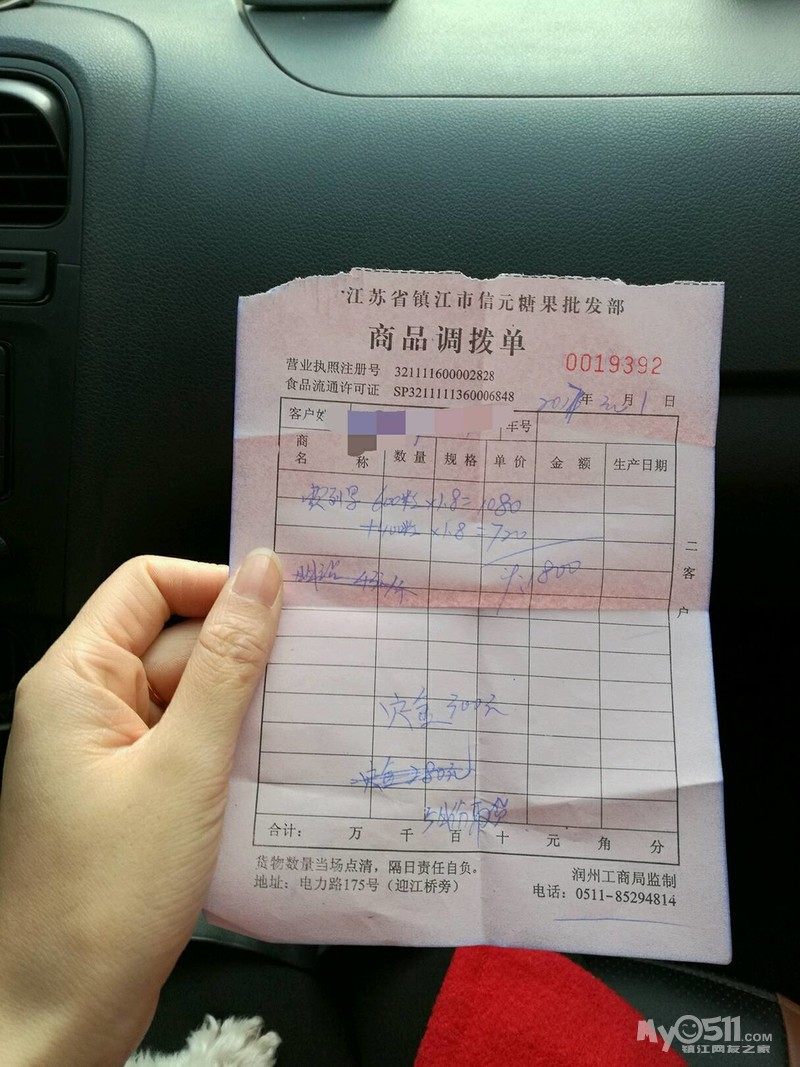 江苏省镇江市信元糖果批发部
商品调拨单
0019392
营业执照注册号 321111600002828
食品流通许可证 SP3211111360006848
2017年 月1日
客户 车号
商名 称 数量 规格 单价 金额 生产日期
费列罗 600粒×1.8=1080
+400粒×1.8=720
¥:1800
定金300元
定金280元
5月份取货
二客户
合计: 万 千 百 十 元 角 分
货物数量当场点清，隔日责任自负。
润州工商局监制
地址：电力路175号（迎江桥旁）
电话：0511-85294814
My0511.COM
镇江网友之家